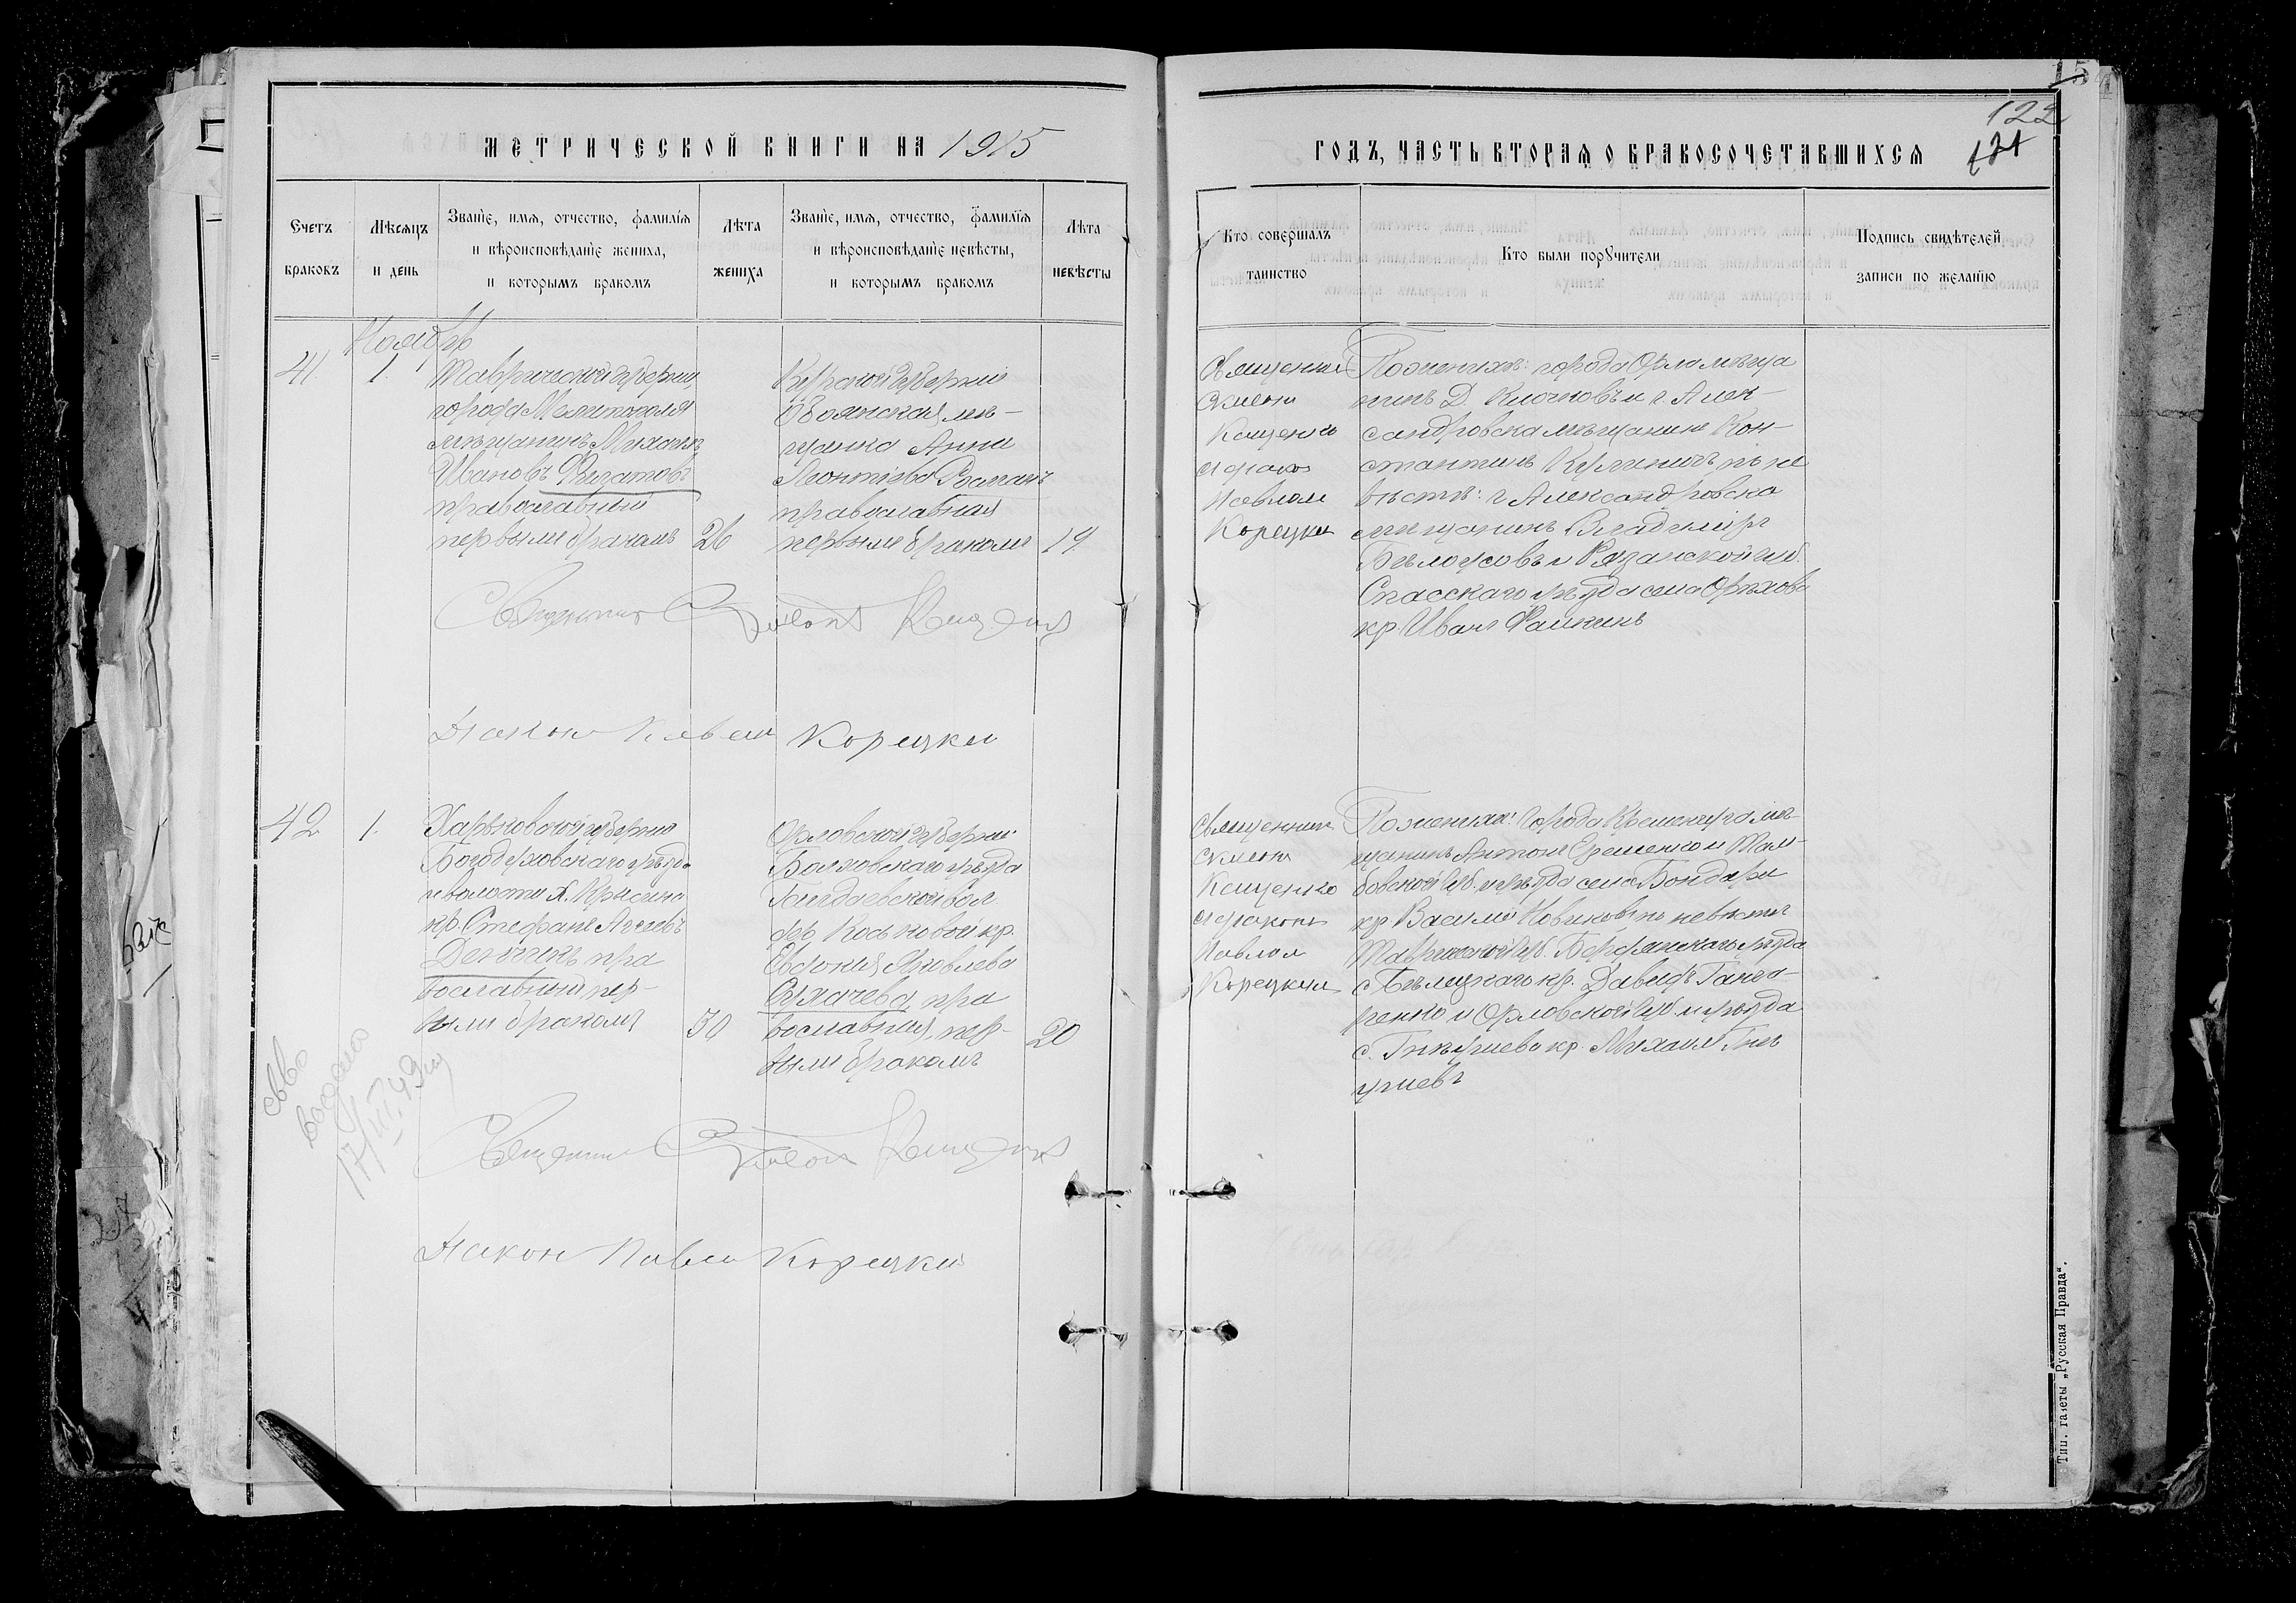 15
122
МЕТРИЧЕСКОЙ КНИГИ НА 1915
ГОДЪ, ЧАСТЬ ВТОРАЯ О БРАКОСОЧЕТАВШИХСЯ
Счетъ браковъ
Мѣсяцъ и день
Званїе, имя, отчество, фамилїя
и вѣроисповѣданїе жениха,
и которымъ бракомъ
Лѣта жениха
Званїе, имя, отчество, фамилїя
и вѣроисповѣданїе невѣсты,
и которымъ бракомъ
Лѣта невѣсты
Кто совершалъ
таинство
Кто были порꙋчители
Подпись свидѣтелей
записи по желанїю
Ноябрь
41.
1.
Таврической губерніи
города Мелитополя
мѣщанинъ Михаилъ
Ивановъ
православный
первымъ бракомъ
26
Курской губерніи
Обоянская мѣ-
щанка Анна
Леонтіева
православная
первымъ бракомъ
19
Священникъ
Симеонъ
Кащенко
и діаконъ
Павелъ
Корецкій
По женихѣ: города Орла мѣща
нинъ Д. Клочковъ и г. Алек-
сандровска мѣщанинъ Кон-
стантинъ по не
вѣстѣ: г. Александровска
мѣщанинъ Владиміръ
Бѣлоусовъ и Рязанской губ.
Спасскаго уѣзда села Орѣхова
кр. Иванъ Фомкинъ
Священникъ Симеонъ Кащенко
Діаконъ Павелъ Корецкій
42
1.
Харьковской губерніи
Богодуховскаго уѣзда
и волости х. Крысина
кр. Стефанъ
пра
вославный пер-
вымъ бракомъ
30
Орловской губерніи
Болховскаго уѣзда
вол.
дер. кр.
Евдокія Яковлева
пра
вославная, пер-
вымъ бракомъ
20
Священникъ
Симеонъ
Кащенко
и діаконъ
Павелъ
Корецкій
По женихѣ: города Кременчуга мѣ-
щанинъ Антонъ Ерешенко и Там-
бовской губ. и уѣзда села Бондари
кр. Василій Новиковъ по невѣстѣ
Таврической губ. Бердянскаго уѣзда
с. кр. Давидъ Гонча-
ренко и Орловской губ. и уѣзда
с. кр. Михаилъ
Св-во
выдано
17/III 49
Священникъ Симеонъ Кащенко
Діаконъ Павелъ Корецкій
Тип. газеты „Русская Правда“.